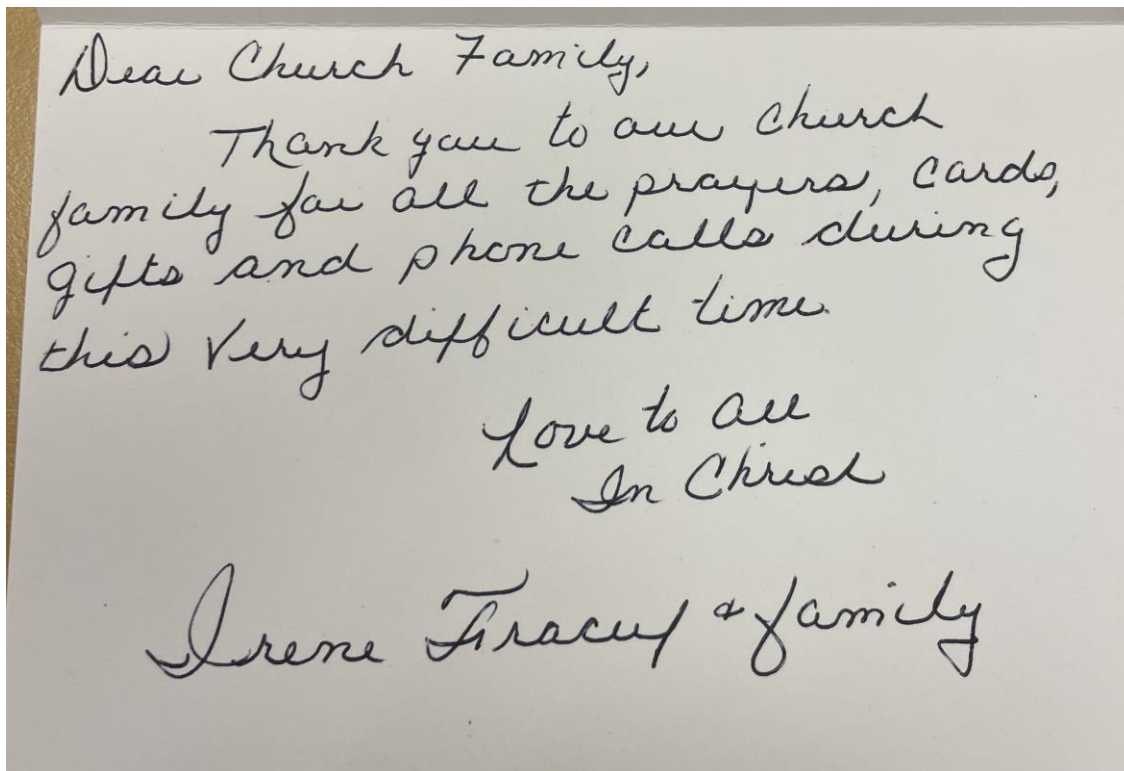 Dear Church Family,
Thank you to our church
family for all the prayers, cards,
gifts and phone calls during
this very difficult time.
Love to all
In Christ
Irene Tracy & family